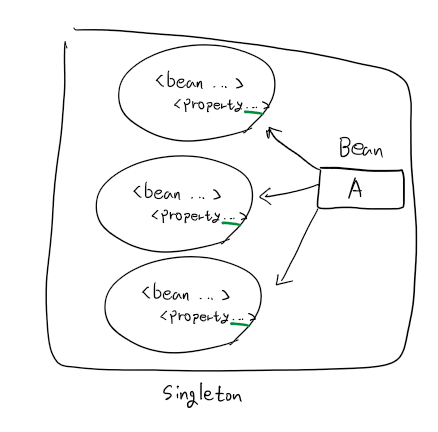 <bean ... >
<property...>
Bean
<bean ... >
<property...>
A
<bean ... >
<property...>
Singleton